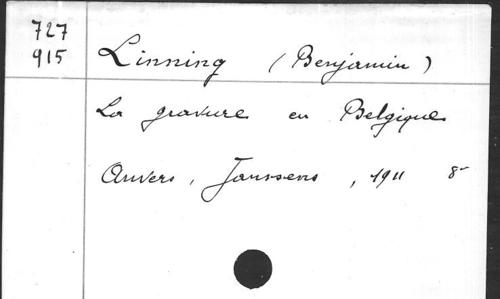 727
915
Linning (Benjamin)
La gravure en Belgique
Anvers, Janssens, 1911 8°